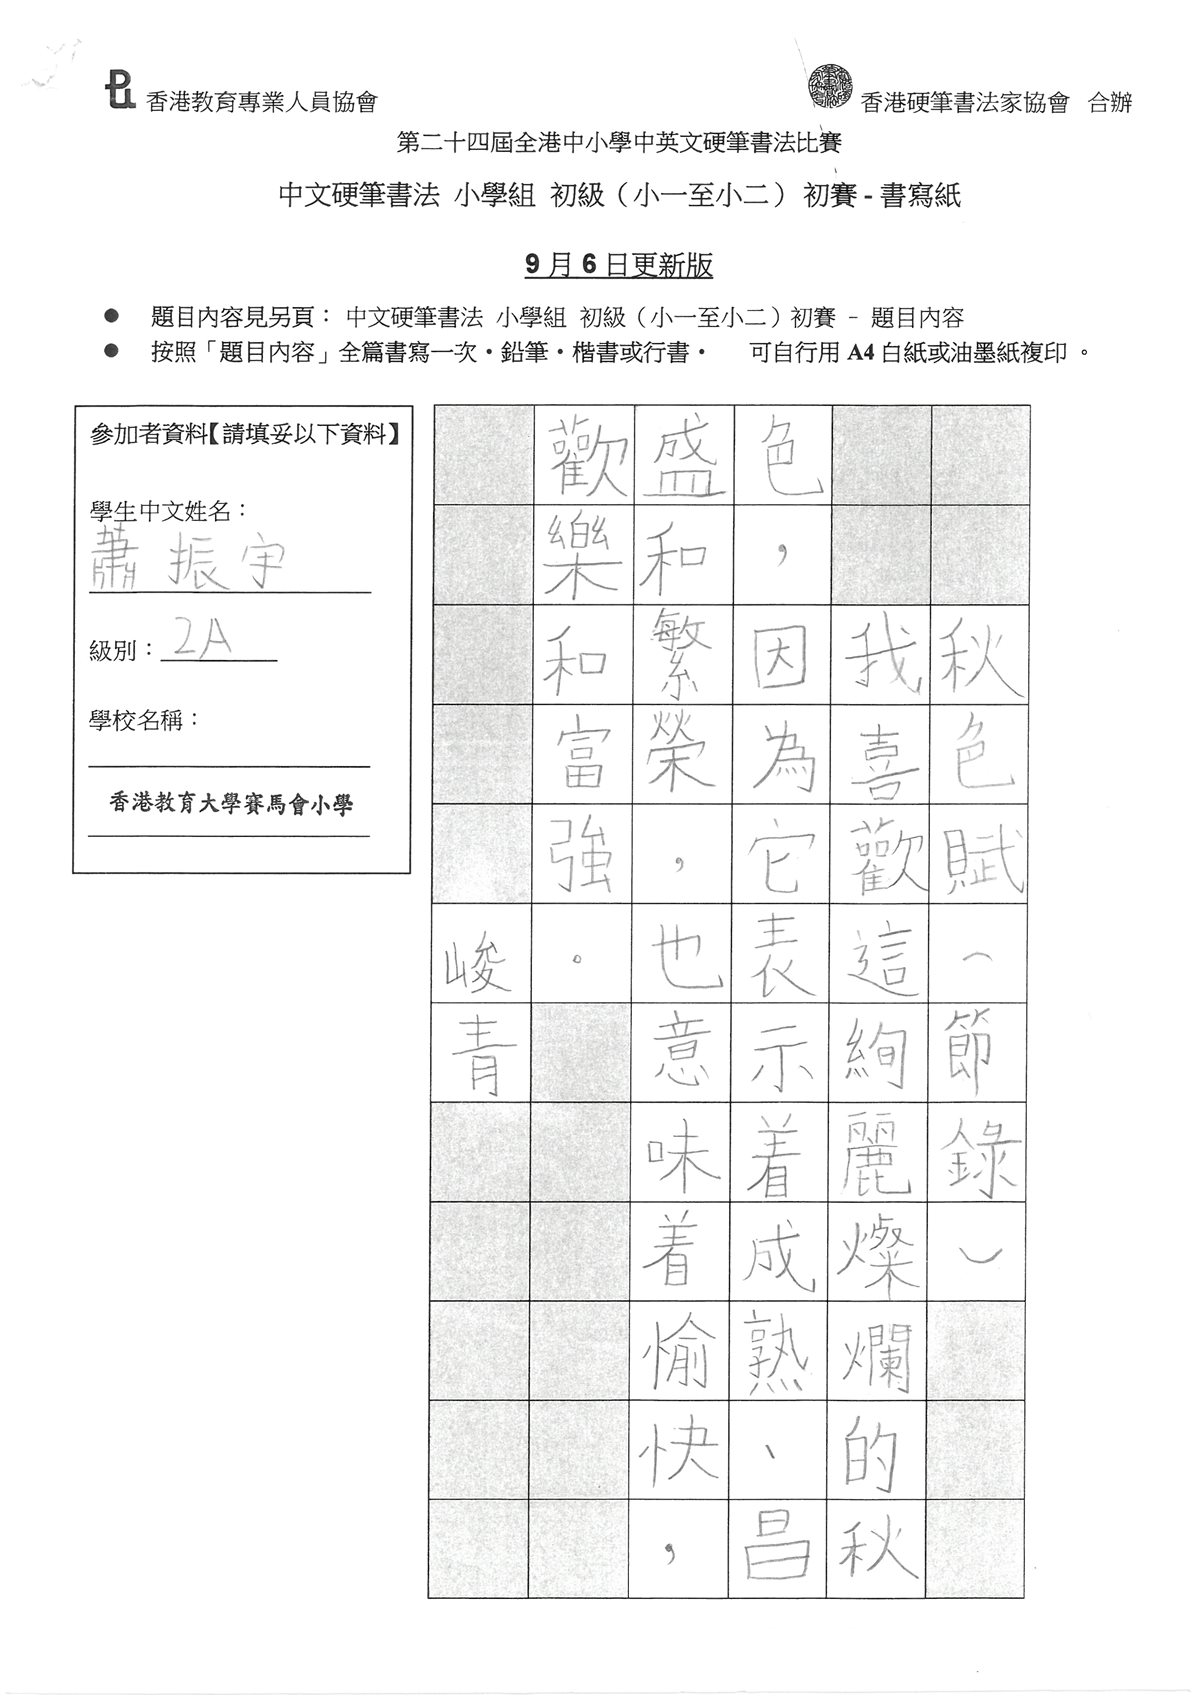 香港教育專業人員協會
香港硬筆書法家協會 合辦
第二十四屆全港中小學中英文硬筆書法比賽
中文硬筆書法 小學組 初級（小一至小二） 初賽 - 書寫紙
9 月 6 日更新版
● 題目內容見另頁： 中文硬筆書法 小學組 初級（小一至小二）初賽 － 題目內容
● 按照「題目內容」全篇書寫一次‧鉛筆‧楷書或行書‧ 可自行用 A4 白紙或油墨紙複印 。
參加者資料【請填妥以下資料】
學生中文姓名：
蕭振宇
級別：2A
學校名稱：
香港教育大學賽馬會小學
秋色賦（節錄）
我喜歡這絢麗燦爛的秋
色，因為它表示着成熟、昌
盛和繁榮，也意味着愉快，
歡樂和富強。
峻青